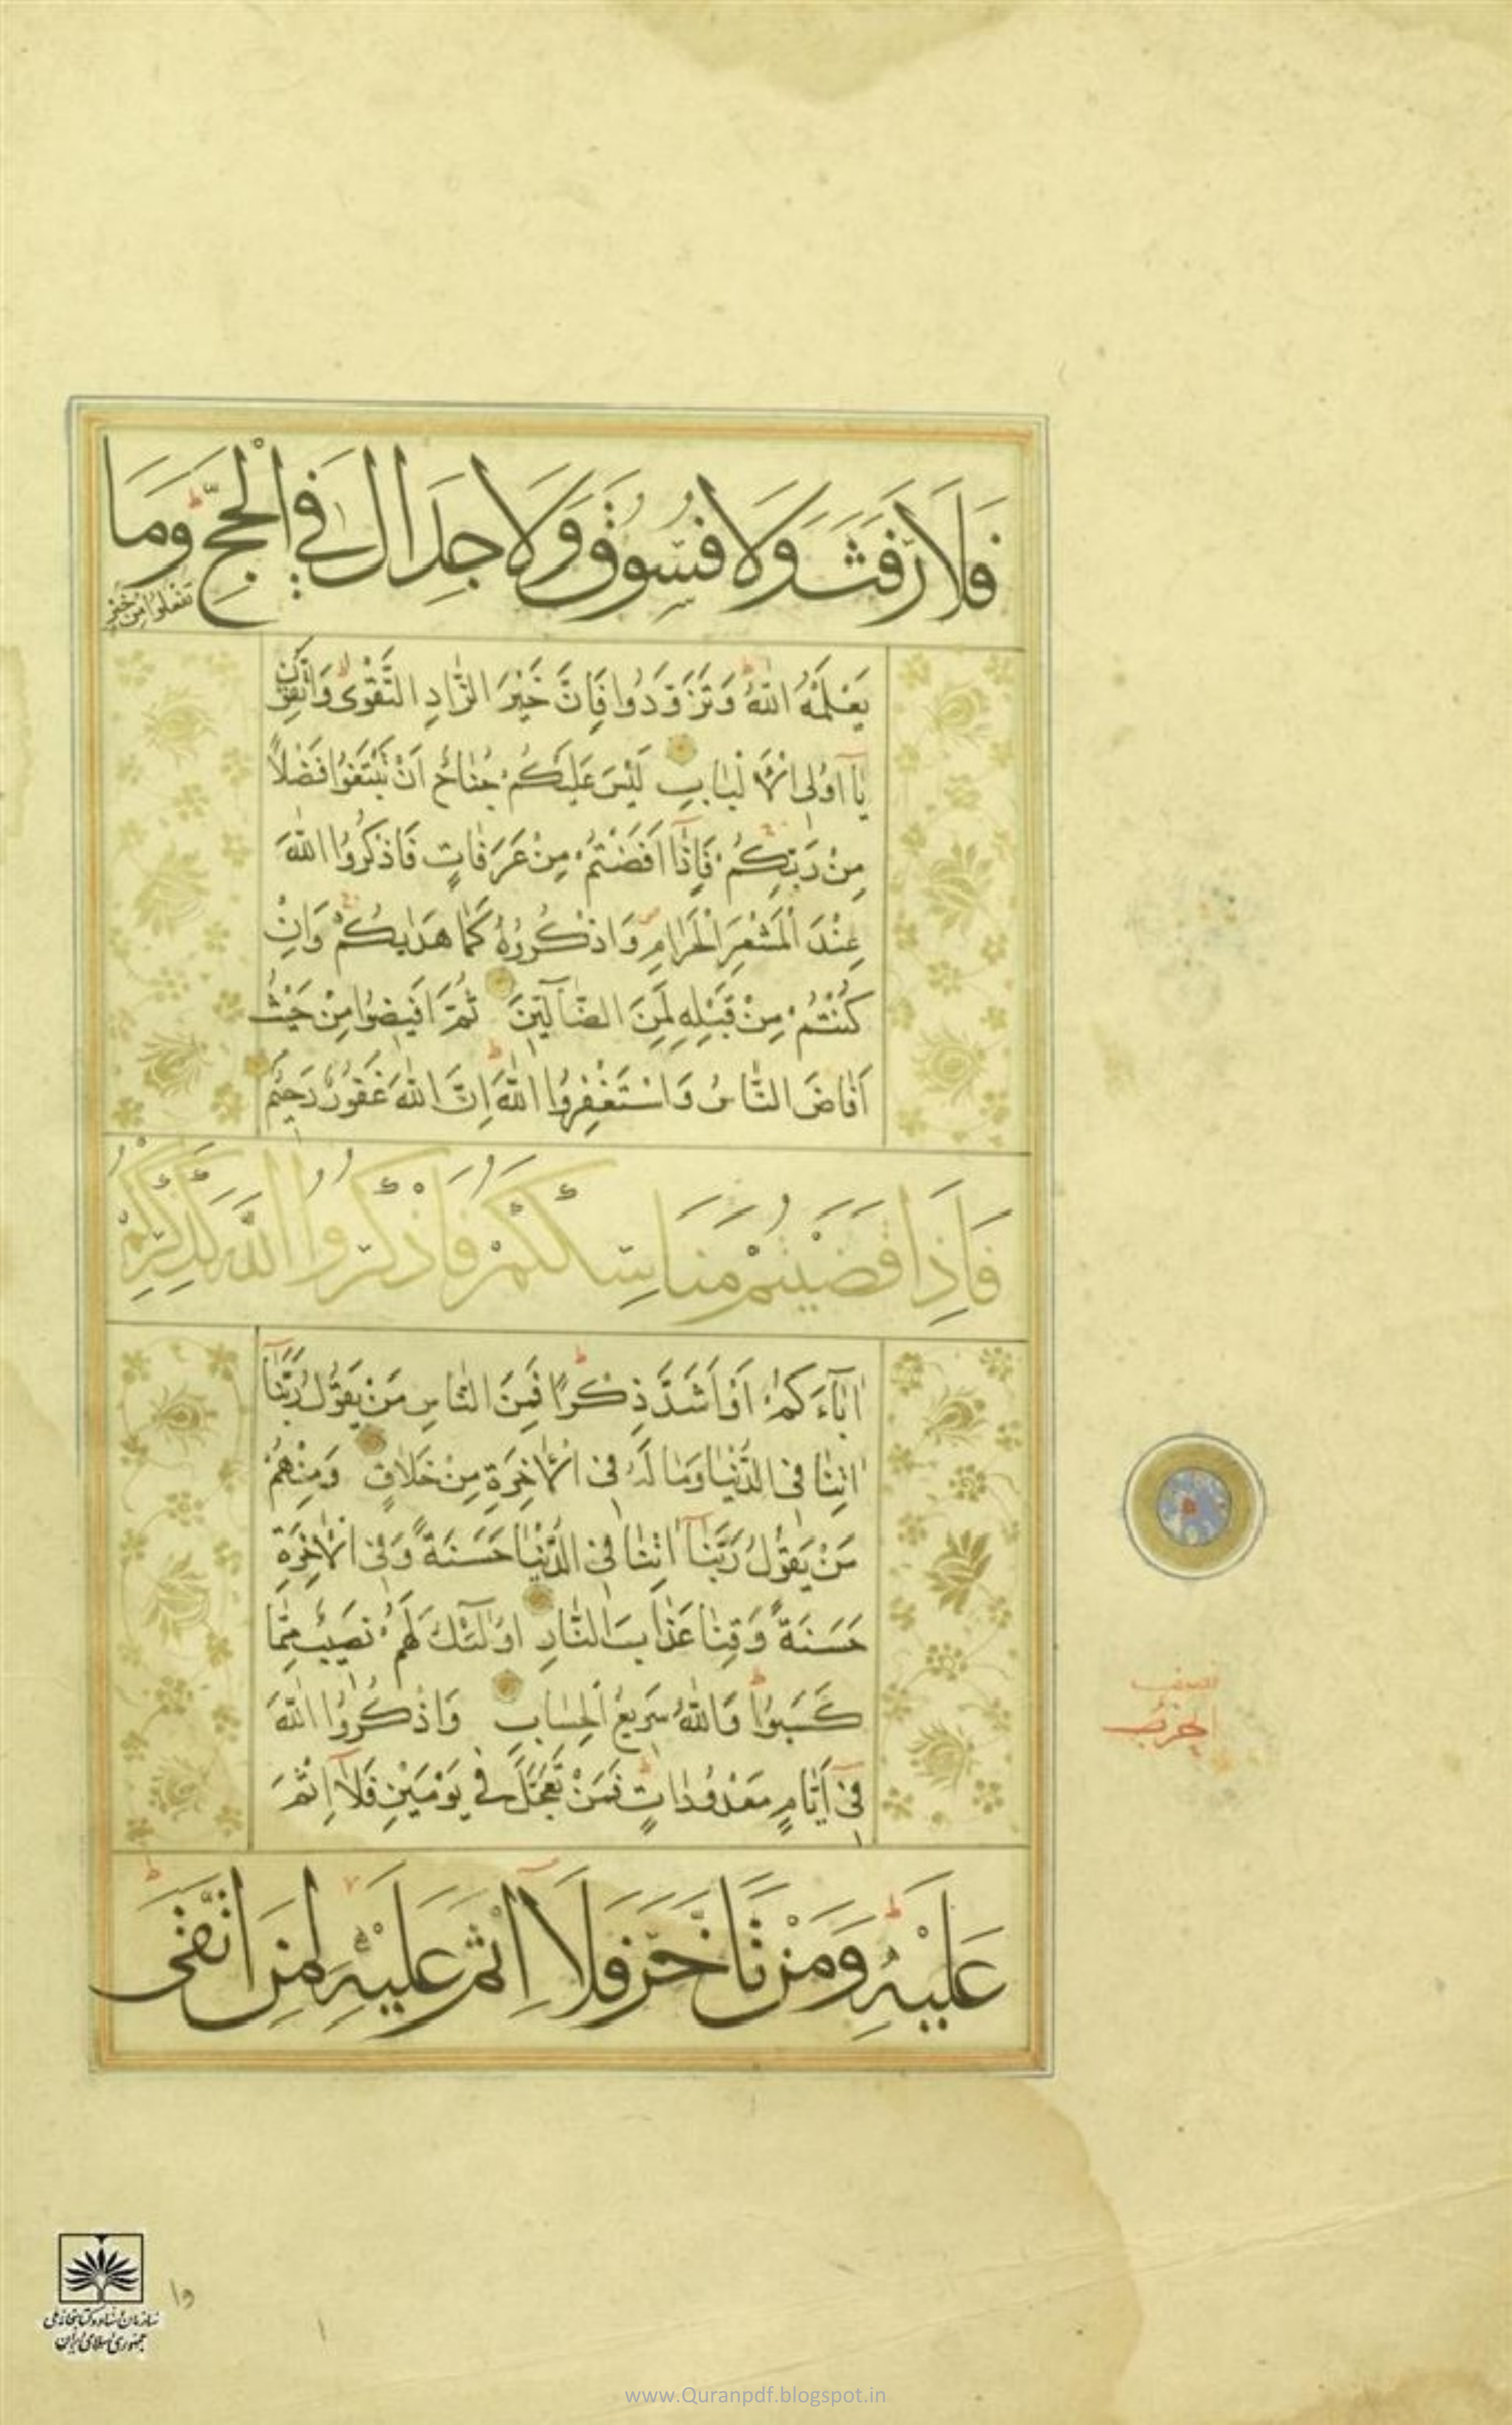 فَلَا رَفَثَ وَلَا فُسُوقَ وَلَا جِدَالَ فِي الْحَجِّ وَمَا
تَفْعَلُوا مِنْ خَيْرٍ
يَعْلَمْهُ اللّٰهُ وَتَزَوَّدُوا فَاِنَّ خَيْرَ الزَّادِ التَّقْوٰى وَاتَّقُونِ
يَآ اُولِى الْاَلْبَابِ لَيْسَ عَلَيْكُمْ جُنَاحٌ اَنْ تَبْتَغُوا فَضْلًا
مِنْ رَبِّكُمْ فَاِذَآ اَفَضْتُمْ مِنْ عَرَفَاتٍ فَاذْكُرُوا اللّٰهَ
عِنْدَ الْمَشْعَرِ الْحَرَامِ وَاذْكُرُوهُ كَمَا هَدٰيكُمْ وَاِنْ
كُنْتُمْ مِنْ قَبْلِهِ لَمِنَ الضَّآلِّينَ ثُمَّ اَفِيضُوا مِنْ حَيْثُ
اَفَاضَ النَّاسُ وَاسْتَغْفِرُوا اللّٰهَ اِنَّ اللّٰهَ غَفُورٌ رَحِيمٌ
فَاِذَا قَضَيْتُمْ مَنَاسِكَكُمْ فَاذْكُرُوا اللّٰهَ كَذِكْرِكُمْ
اٰبَآءَكُمْ اَوْ اَشَدَّ ذِكْرًا فَمِنَ النَّاسِ مَنْ يَقُولُ رَبَّنَآ
اٰتِنَا فِى الدُّنْيَا وَمَا لَهُ فِى الْاٰخِرَةِ مِنْ خَلَاقٍ وَمِنْهُمْ
مَنْ يَقُولُ رَبَّنَآ اٰتِنَا فِى الدُّنْيَا حَسَنَةً وَفِى الْاٰخِرَةِ
حَسَنَةً وَقِنَا عَذَابَ النَّارِ اُولٰٓئِكَ لَهُمْ نَصِيبٌ مِمَّا
كَسَبُوا وَاللّٰهُ سَرِيعُ الْحِسَابِ وَاذْكُرُوا اللّٰهَ
فِىٓ اَيَّامٍ مَعْدُودَاتٍ فَمَنْ تَعَجَّلَ فِي يَوْمَيْنِ فَلَآ اِثْمَ
عَلَيْهِ وَمَنْ تَاَخَّرَ فَلَآ اِثْمَ عَلَيْهِ لِمَنِ اتَّقٰى
نصف
الحزب
سازمان اسناد و کتابخانه ملی
جمهوری اسلامی ایران
وا
www.Quranpdf.blogspot.in